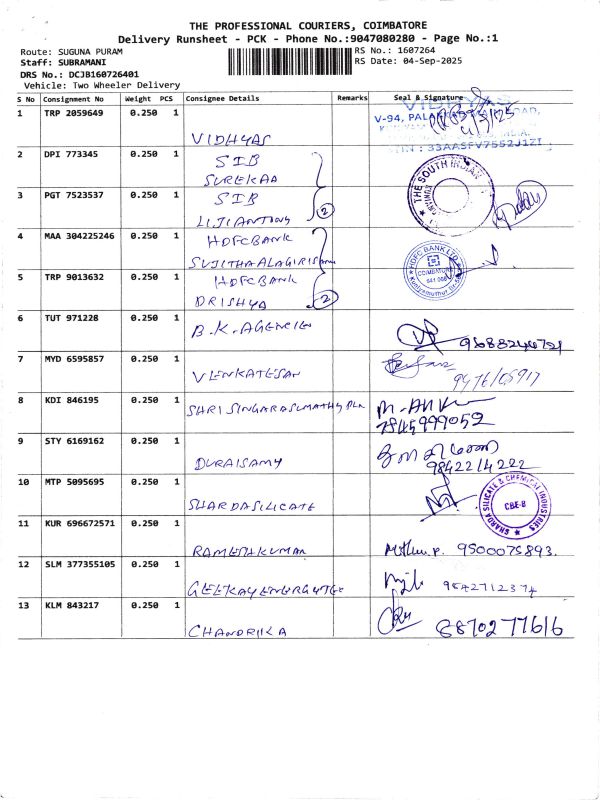 THE PROFESSIONAL COURIERS, COIMBATORE
Delivery Runsheet - PCK - Phone No.:9047080280 - Page No.:1
Route: SUGUNA PURAM
RS No.: 1607264
Staff: SUBRAMANI
RS Date: 04-Sep-2025
DRS No.: DCJB160726401
Vehicle: Two Wheeler Delivery
S No Consignment No Weight PCS Consignee Details Remarks Seal & Signature
1 TRP 2059649 0.250 1 VIDHYAS
V-94,
4/9/25
: 33AASFV7552J1ZI
2 DPI 773345 0.250 1 SIB
SUREKAA
THE SOUTH INDIAN
3 PGT 7523537 0.250 1 SIB
LIJIANTONY 2
4 MAA 304225246 0.250 1 HDFCBANK
SUJITHAALAGIRISAMY
HDFC BANK LTD
COIMBATORE
641 008
5 TRP 9013632 0.250 1 HDFCBANK
DRISHYA 2
6 TUT 971228 0.250 1 B.K.AGENCIES
9688244721
7 MYD 6595857 0.250 1 VENKATESAN
8 KDI 846195 0.250 1
7845999052
9 STY 6169162 0.250 1 DURAISAMY
9842214222
10 MTP 5095695 0.250 1 SHARDASILICATE
SHARDA SILICATE & CHEMICAL INDUSTRIES
CBE-8
11 KUR 696672571 0.250 1 RAMESHKUMAR
9500075893.
12 SLM 377355105 0.250 1
9842712374
13 KLM 843217 0.250 1 CHANDRIKA
8870277616